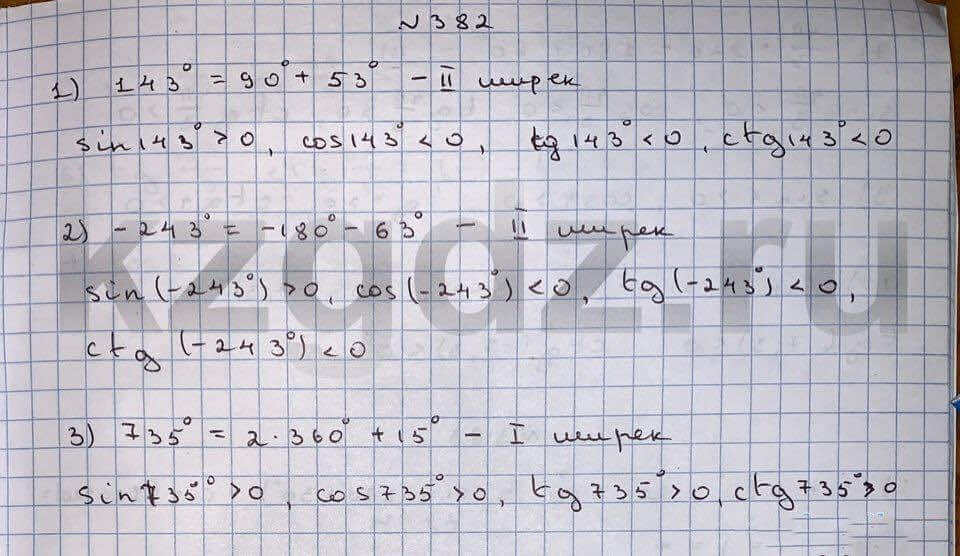 №382
1) 143° = 90° + 53° – II ширек
sin143° > 0, cos143° < 0, tg143° < 0, ctg143° < 0
2) -243° = -180° - 63° – II ширек
sin(-243°) > 0, cos(-243°) < 0, tg(-243°) < 0,
ctg(-243°) < 0
3) 735° = 2·360° + 15° – I ширек
sin735° > 0, cos735° > 0, tg735° > 0, ctg735° > 0
kzgdz.ru